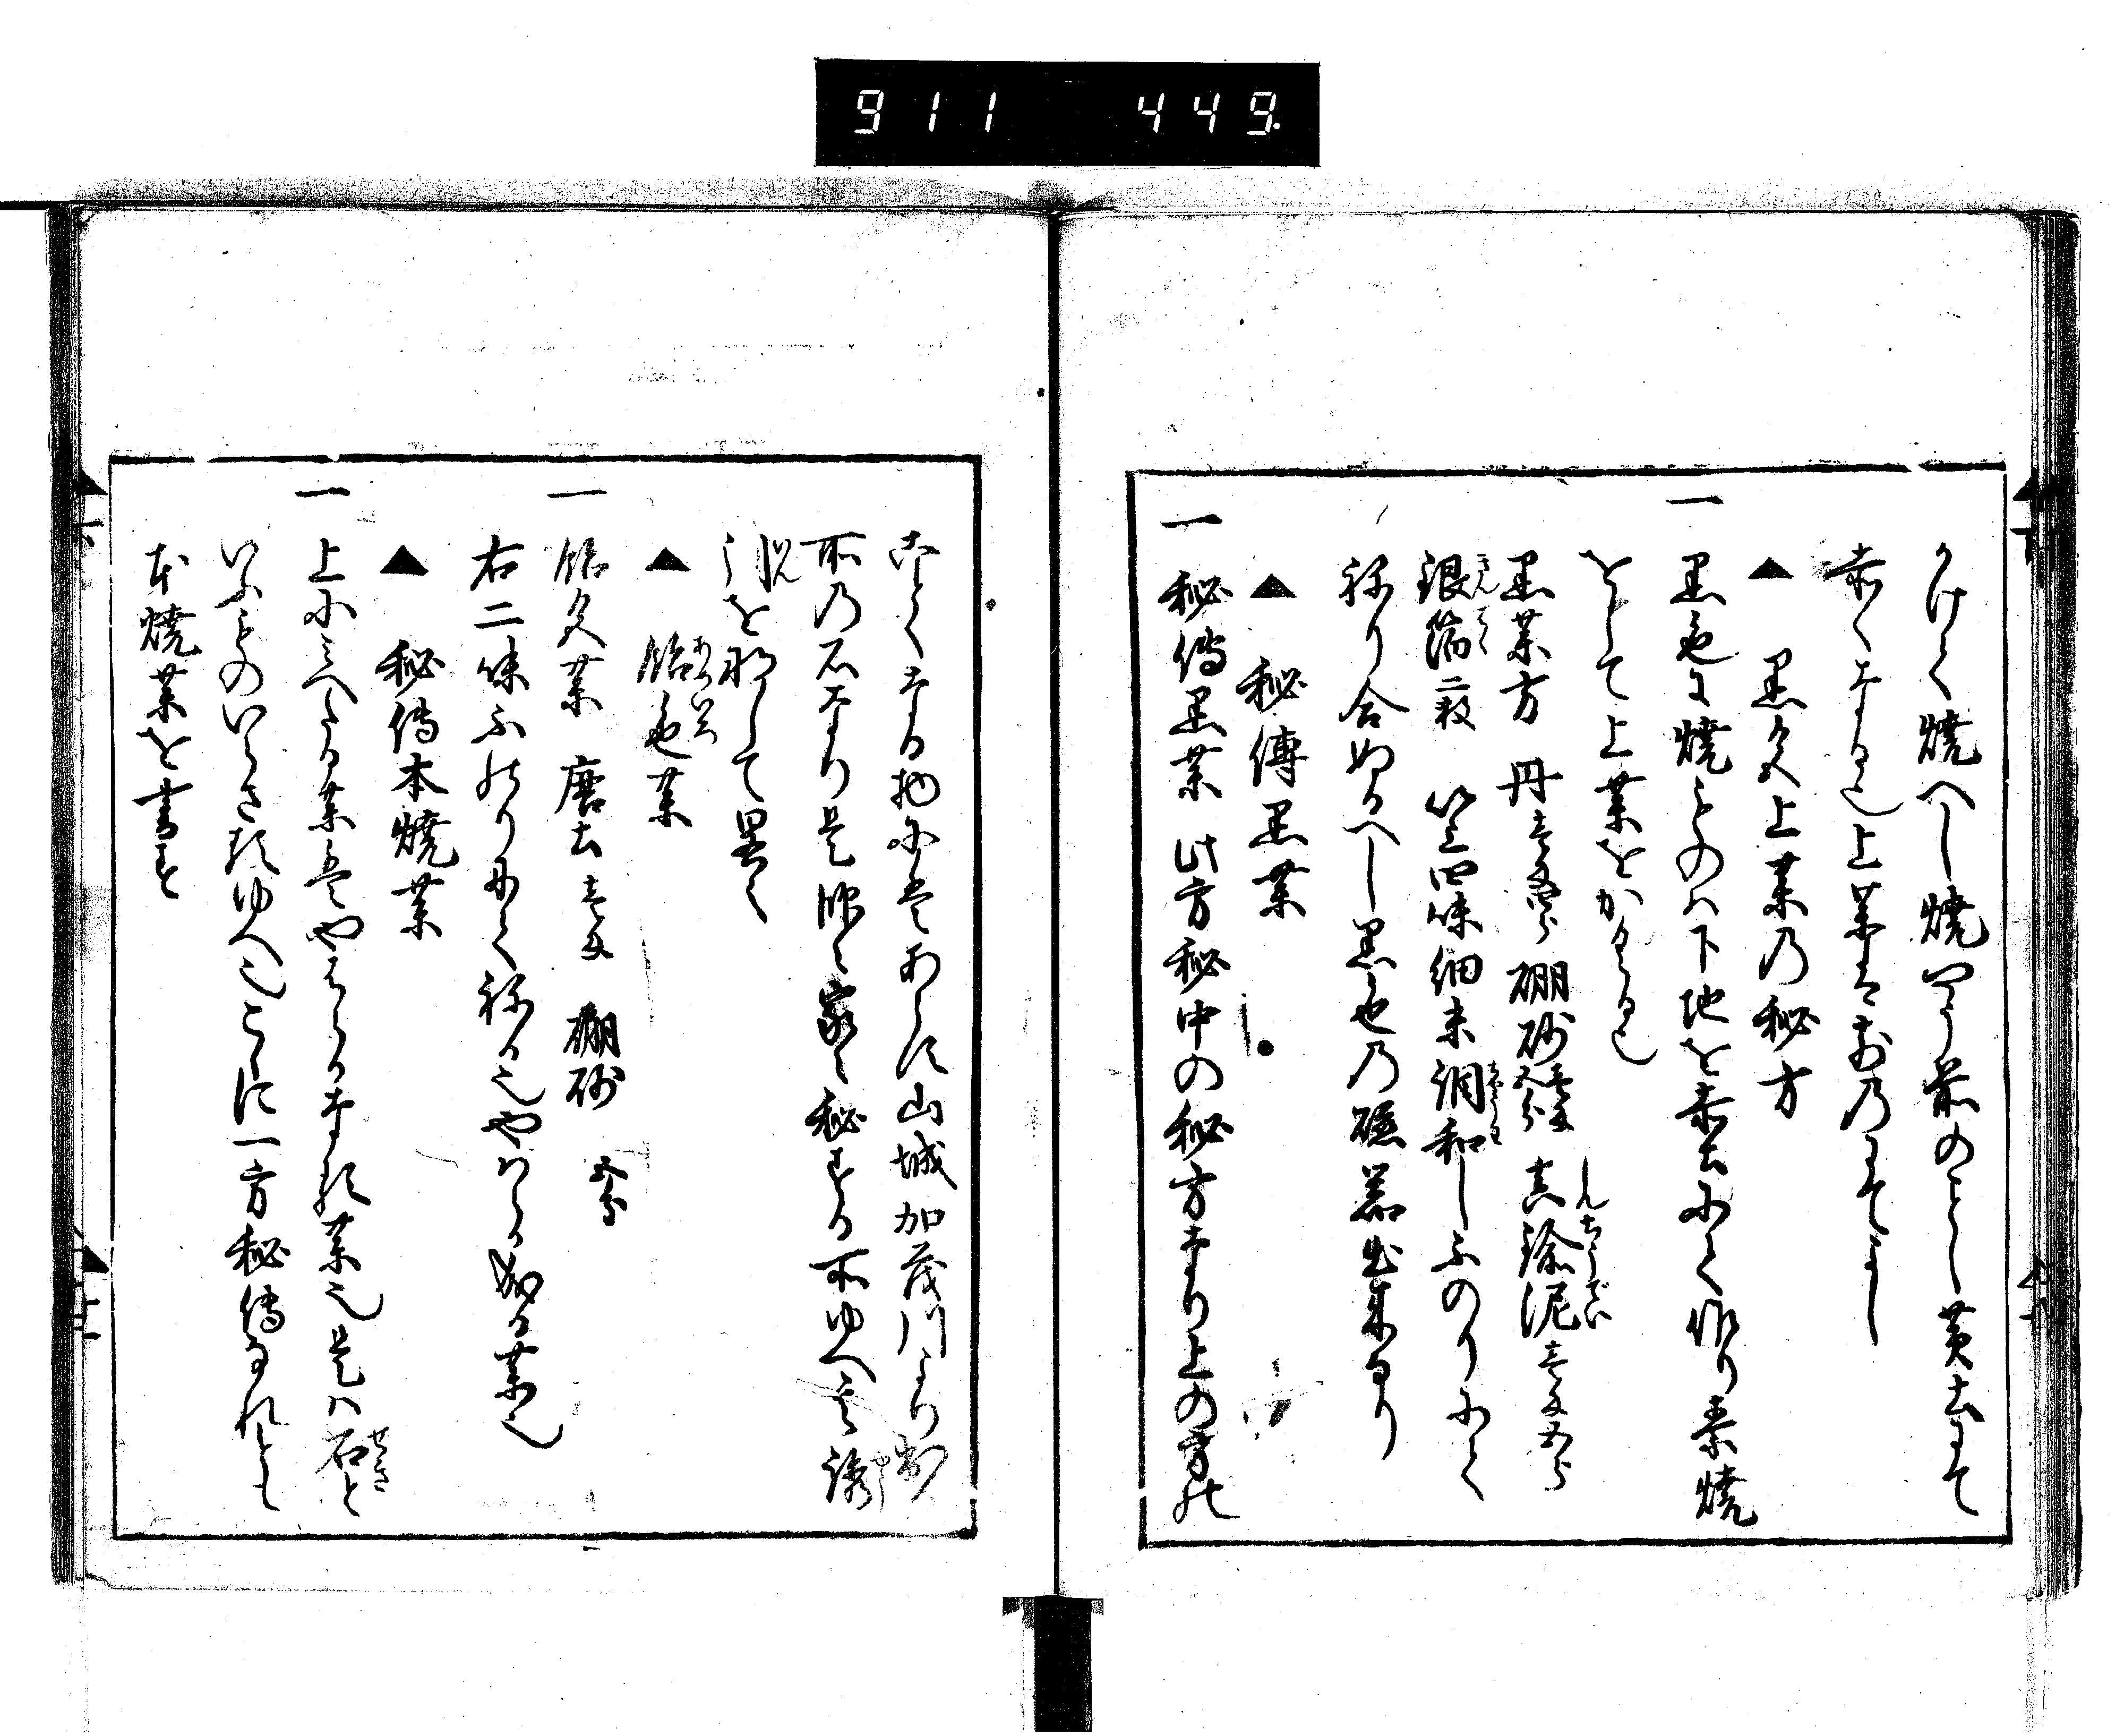 911 449.
かけて焼へし焼やう前のことし黄土にて
赤くなる也上薬は前のにてよし
▲ 黒色上薬乃秘方
一 黒色に焼ものハ下地を赤土にて作り素焼
をして上薬をかくる也
黒薬方 丹 硼砂 真鍮泥
銀箔二枚 四味細末調和しふのりにて
ねり合ぬるへし黒色乃磁器出来るなり
▲ 秘傳黒薬
一 秘傳黒薬 此方秘中の秘方なり上の方の
ことくなる物にてあらす山城加茂川より出
所乃石なり是深く家々秘する所ゆへ
を那して畧く
▲ 飴色薬
一 飴色薬 唐土 硼砂
右二味ふのりにてねる也やハらか成る薬也
▲ 秘傳本焼薬
一 上にみへたる薬ハやはらかなる薬也是ハ石と
いふものいらさるゆへ也こゝに一方秘傳なれとも
本焼薬を書す